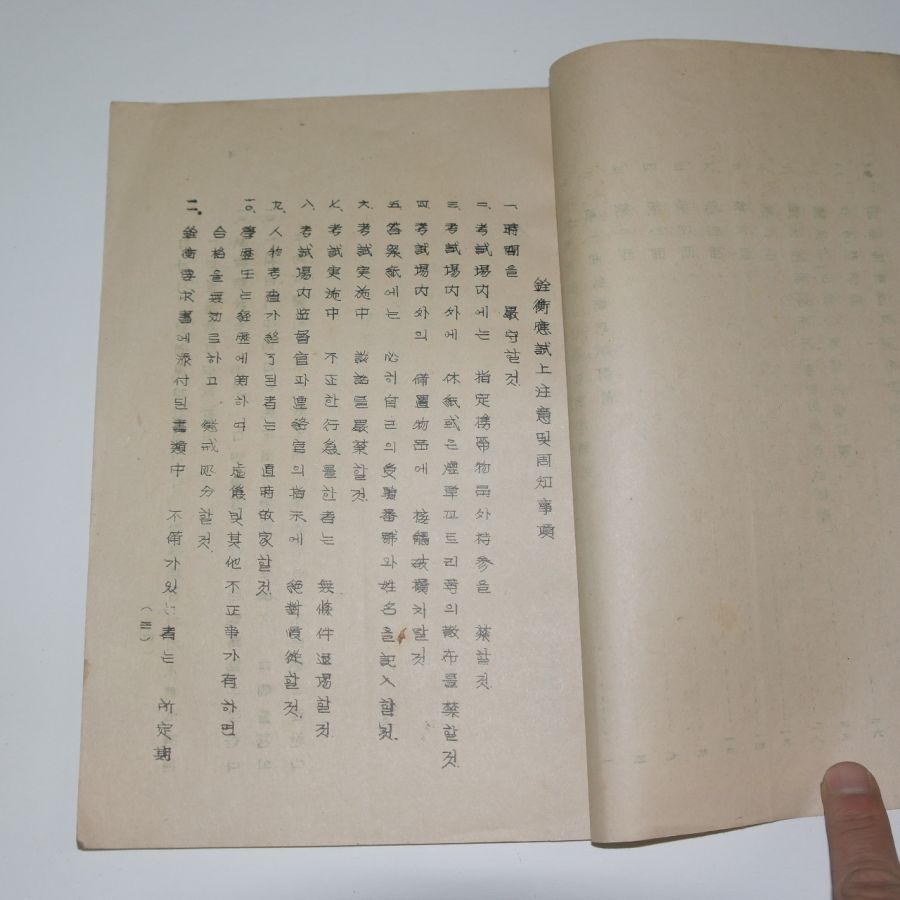 銓衡應試上注意및周知事項
一. 時間을 嚴守할것.
二. 考試場內에는 指定携帶物品外持参을 禁할것.
三. 考試場內外에 休紙或은 煙草꼬트리等의 散布를 禁할것.
四. 考試場內外의 備置物品에 接觸破損치말것.
五. 答案紙에는 必히自己의受驗番號와姓名을記入할것.
六. 考試実施中 談話를嚴禁할것.
七. 考試実施中 不正한行為를한者는 無條件退場할것
八. 考試場内监督官과連絡官의指示에 絶對順從할것.
九. 人物考査가終了된者는 直時故家할것.
一〇. 學歷또는経歷에関하여 虛僞및其他不正事가有하면
合格을無効로하고 懲戒処分할것.
二. 銓衡要求書에添付된書類中 不備가있는者는 所定期
(四)